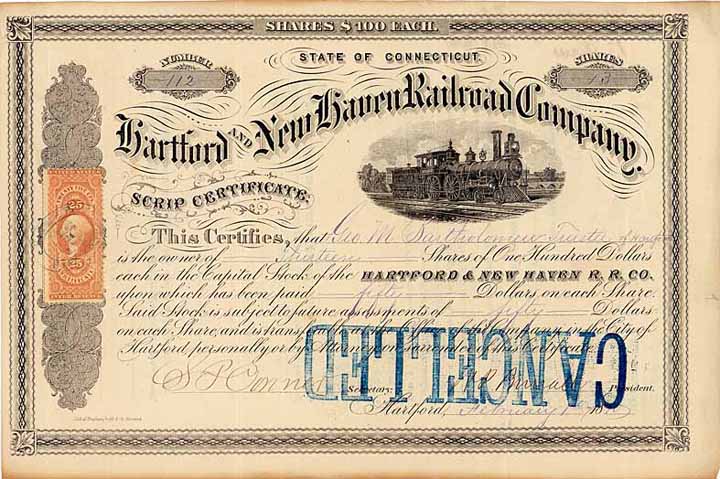 SHARES $100 EACH.
STATE OF CONNECTICUT.
NUMBER
112
SHARES
Hartford AND New Haven Railroad Company.
SCRIP CERTIFICATE.
This Certifies, that Geo. M. Bartholomew Trustee of Hartford
is the owner of Shares of One Hundred Dollars
each in the Capital Stock of the HARTFORD & NEW HAVEN R. R. CO.
upon which has been paid fifty Dollars on each Share.
Said Stock is subject to future assessments of fifty Dollars
on each Share, and is in the City of
Hartford, personally or by Attorney on Surrender of this Certificate.
CANCELLED
Secretary.
President.
Hartford, February
25
25